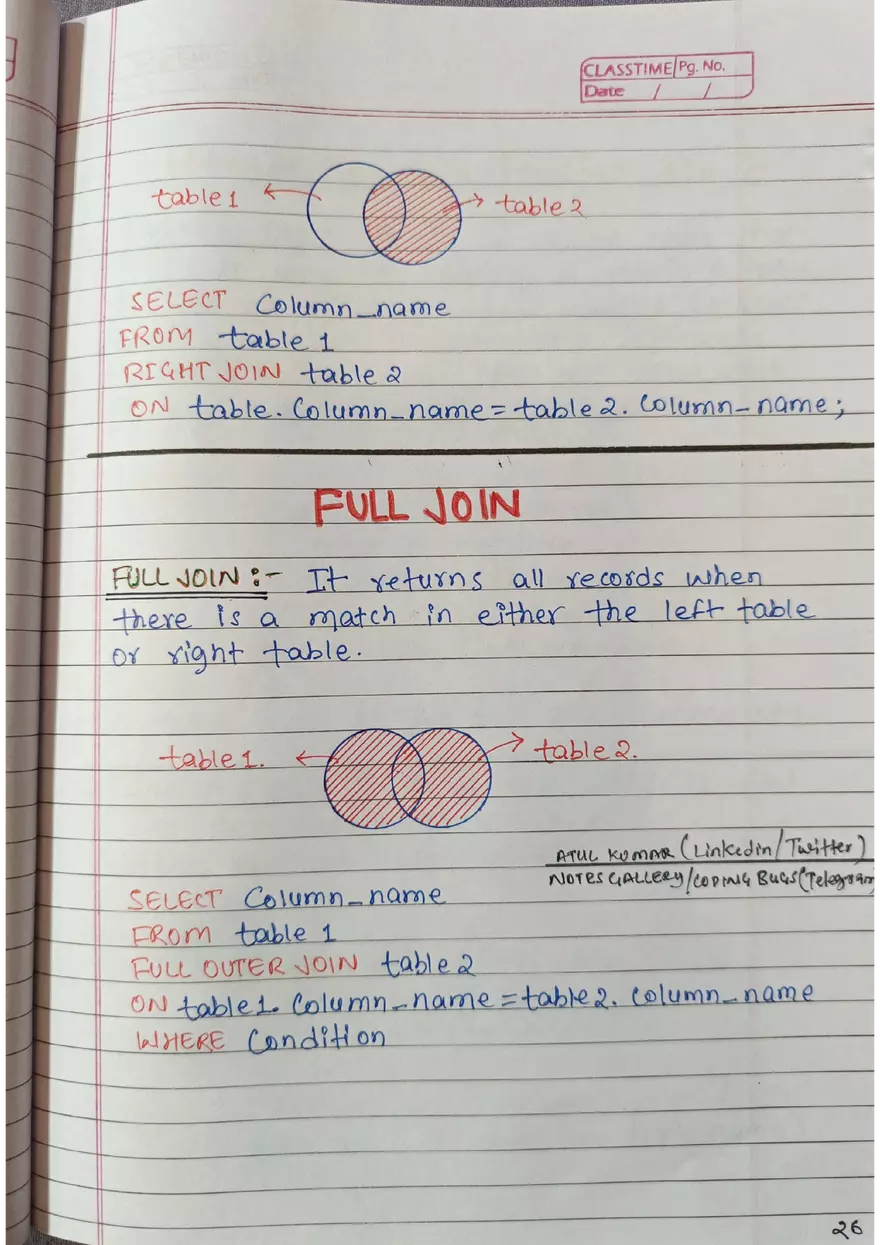 CLASSTIME Pg. No.
Date / /
table 1 table 2
SELECT Column_name
FROM table 1
RIGHT JOIN table 2
ON table. Column_name = table 2. Column_name;
FULL JOIN
FULL JOIN :- It returns all records when
there is a match in either the left table
or right table.
table 1. table 2.
ATUL KUMAR (Linkedin/Twitter)
NOTES GALLERY/CODING BUGS (Telegram)
SELECT Column_name
FROM table 1
FULL OUTER JOIN table 2
ON table 1. Column_name = table 2. Column_name
WHERE Condition
26